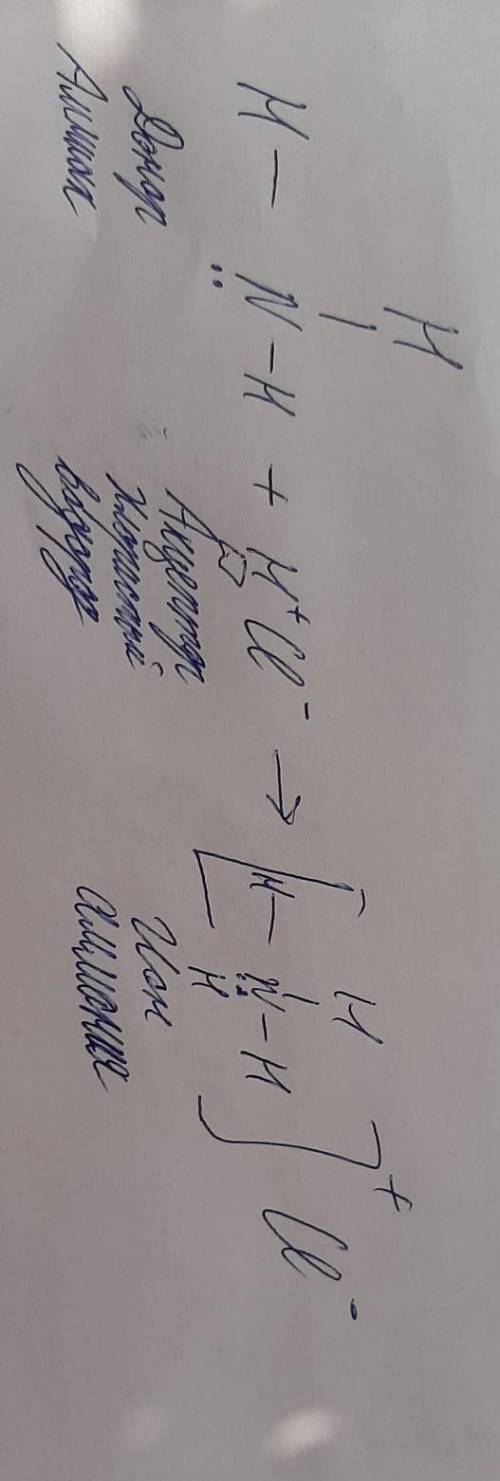 H
H — N̈ — H + H⁺Cl⁻ → [H — N — H]⁺ Cl⁻
H
H
Донор
Аммиак
Акцептор
хлористый
водород
Ион
аммония